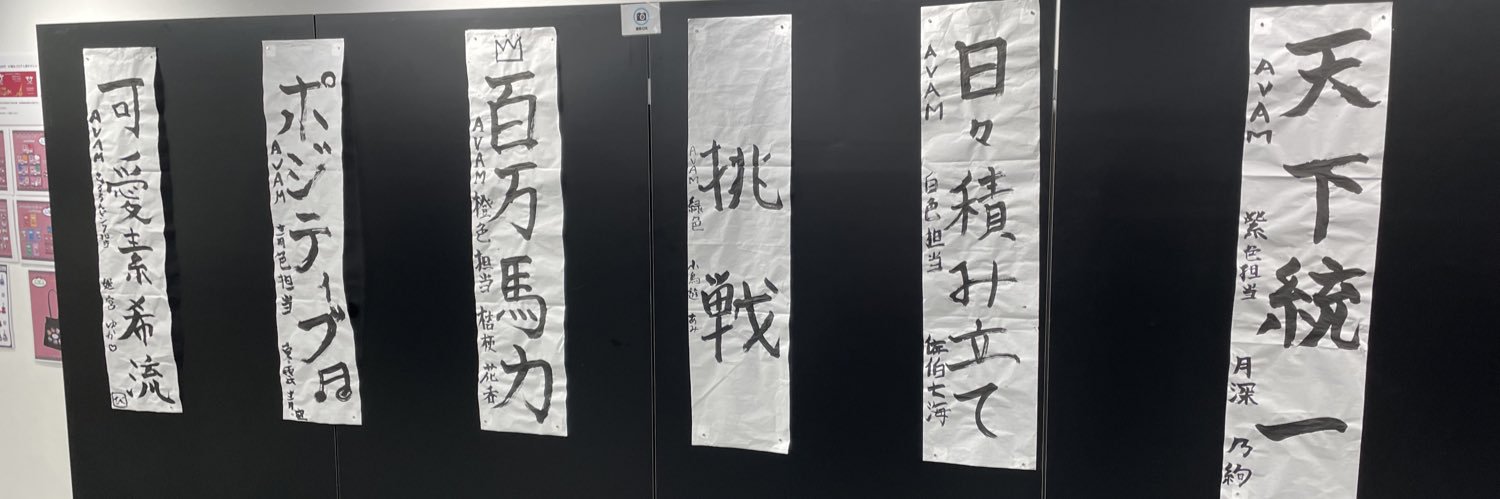 天下統一
AVAM
紫色担当
月深 乃絢
日々積み立て
AVAM
白色担当
佐伯七海
挑戦
AVAM 緑色 小鳥遊 あみ
百万馬力
AVAM 橙色担当 桔梗 花香
ポジティブ♬
AVAM 青色担当 東雲 青空
可愛素希流
AVAM
姫宮 ゆか♡